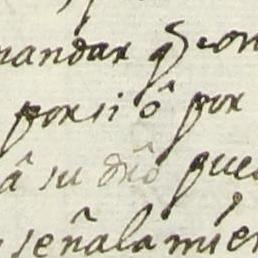 mandar q con
por si ô por
â su dr̃o pue
señalamien